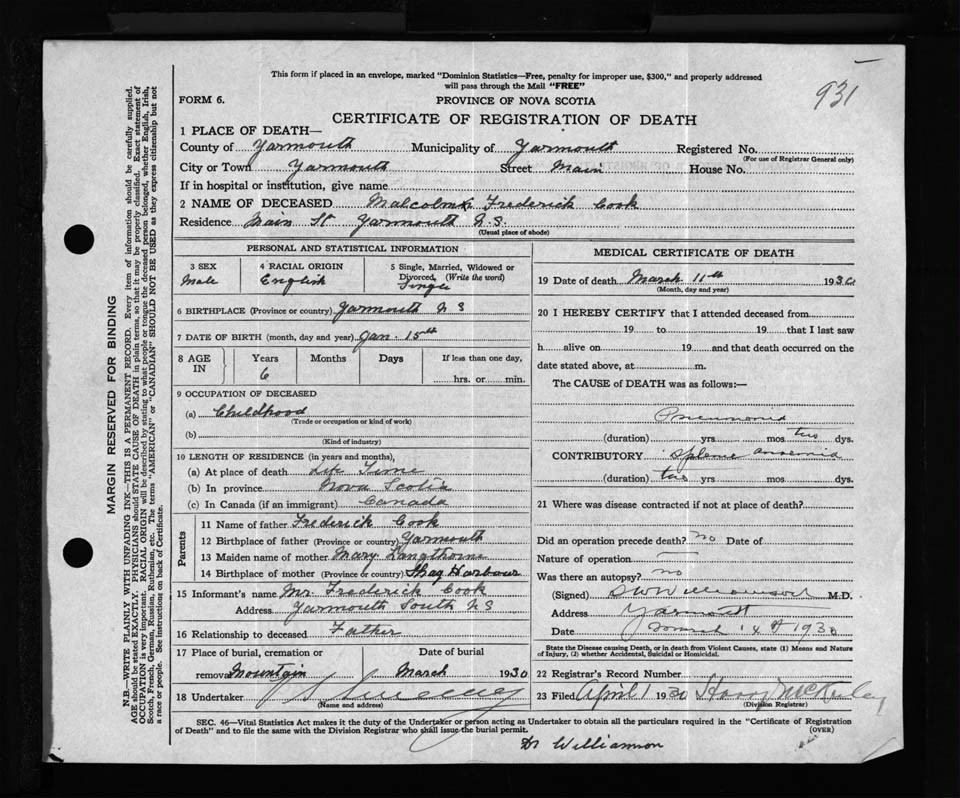 This form if placed in an envelope, marked "Dominion Statistics—Free, penalty for improper use, $300," and properly addressed
will pass through the Mail "FREE"
931
FORM 6.
PROVINCE OF NOVA SCOTIA
CERTIFICATE OF REGISTRATION OF DEATH
1 PLACE OF DEATH—
County of Yarmouth Municipality of Yarmouth Registered No.
(For use of Registrar General only)
City or Town Yarmouth Street Main House No.
If in hospital or institution, give name
2 NAME OF DECEASED Malcolm Frederick Cook
Residence Main St Yarmouth N.S.
(Usual place of abode)
PERSONAL AND STATISTICAL INFORMATION
3 SEX Male
4 RACIAL ORIGIN English
5 Single, Married, Widowed or
Divorced, (Write the word)
Single
6 BIRTHPLACE (Province or country) Yarmouth N S
7 DATE OF BIRTH (month, day and year) Jan. 15th
8 AGE IN Years Months Days If less than one day,
6 hrs. or min.
9 OCCUPATION OF DECEASED
(a) Childhood
(Trade or occupation or kind of work)
(b)
(Kind of industry)
10 LENGTH OF RESIDENCE (in years and months),
(a) At place of death Life Time
(b) In province Nova Scotia
(c) In Canada (if an immigrant) Canada
Parents
11 Name of father Frederick Cook
12 Birthplace of father (Province or country) Yarmouth
13 Maiden name of mother Mary
14 Birthplace of mother (Province or country) Shag Harbour
15 Informant's name Mr. Frederick Cook
Address Yarmouth South N S
16 Relationship to deceased Father
17 Place of burial, cremation or Date of burial
removal Mountain March 1930
18 Undertaker
(Name and address)
MEDICAL CERTIFICATE OF DEATH
19 Date of death March 11th 1930
(Month, day and year)
20 I HEREBY CERTIFY that I attended deceased from
19 to 19 that I last saw
h alive on 19 and that death occurred on the
date stated above, at m.
The CAUSE of DEATH was as follows:—
Pneumonia
(duration) yrs. mos two dys.
CONTRIBUTORY Splenic anaemia
(duration) two yrs. mos dys.
21 Where was disease contracted if not at place of death?
Did an operation precede death? no Date of
Nature of operation
Was there an autopsy? no
(Signed) Williamson M.D.
Address Yarmouth
Date March 14th 1930
State the Disease causing Death, or in death from Violent Causes, state (1) Means and Nature
of Injury, (2) whether Accidental, Suicidal or Homicidal.
22 Registrar's Record Number
23 Filed April 1 1930 Harry McKinley
(Division Registrar)
SEC. 46—Vital Statistics Act makes it the duty of the Undertaker or person acting as Undertaker to obtain all the particulars required in the "Certificate of Registration
of Death" and to file the same with the Division Registrar who shall issue the burial permit.
(OVER)
Dr Williamson
MARGIN RESERVED FOR BINDING
N.B.—WRITE PLAINLY WITH UNFADING INK—THIS IS A PERMANENT RECORD. Every item of information should be carefully supplied.
AGE should be stated EXACTLY. PHYSICIANS should STATE CAUSE OF DEATH in plain terms, so that it may be properly classified. Exact statement of
OCCUPATION is very important. RACIAL ORIGIN will be described by stating to what people or tongue the deceased person belonged, whether English, Irish,
Scotch, French, German, Russian, Ruthenian, etc. The terms "AMERICAN" or "CANADIAN" SHOULD NOT BE USED as they express citizenship but not
a race or people. See instructions on back of Certificate.